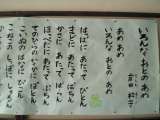 いろんな おとの あめ
岸田 衿子
あめ あめ
いろんな おとの あめ
はっぱに あたって ぴとん
まどに あたって ぱちん
かさに あたって ぱらん
ほっぺたに あたって ぷちん
てのひらの なかに ぽとん
こいぬの はなに ぴこん
こねこの しっぽに しゅるん